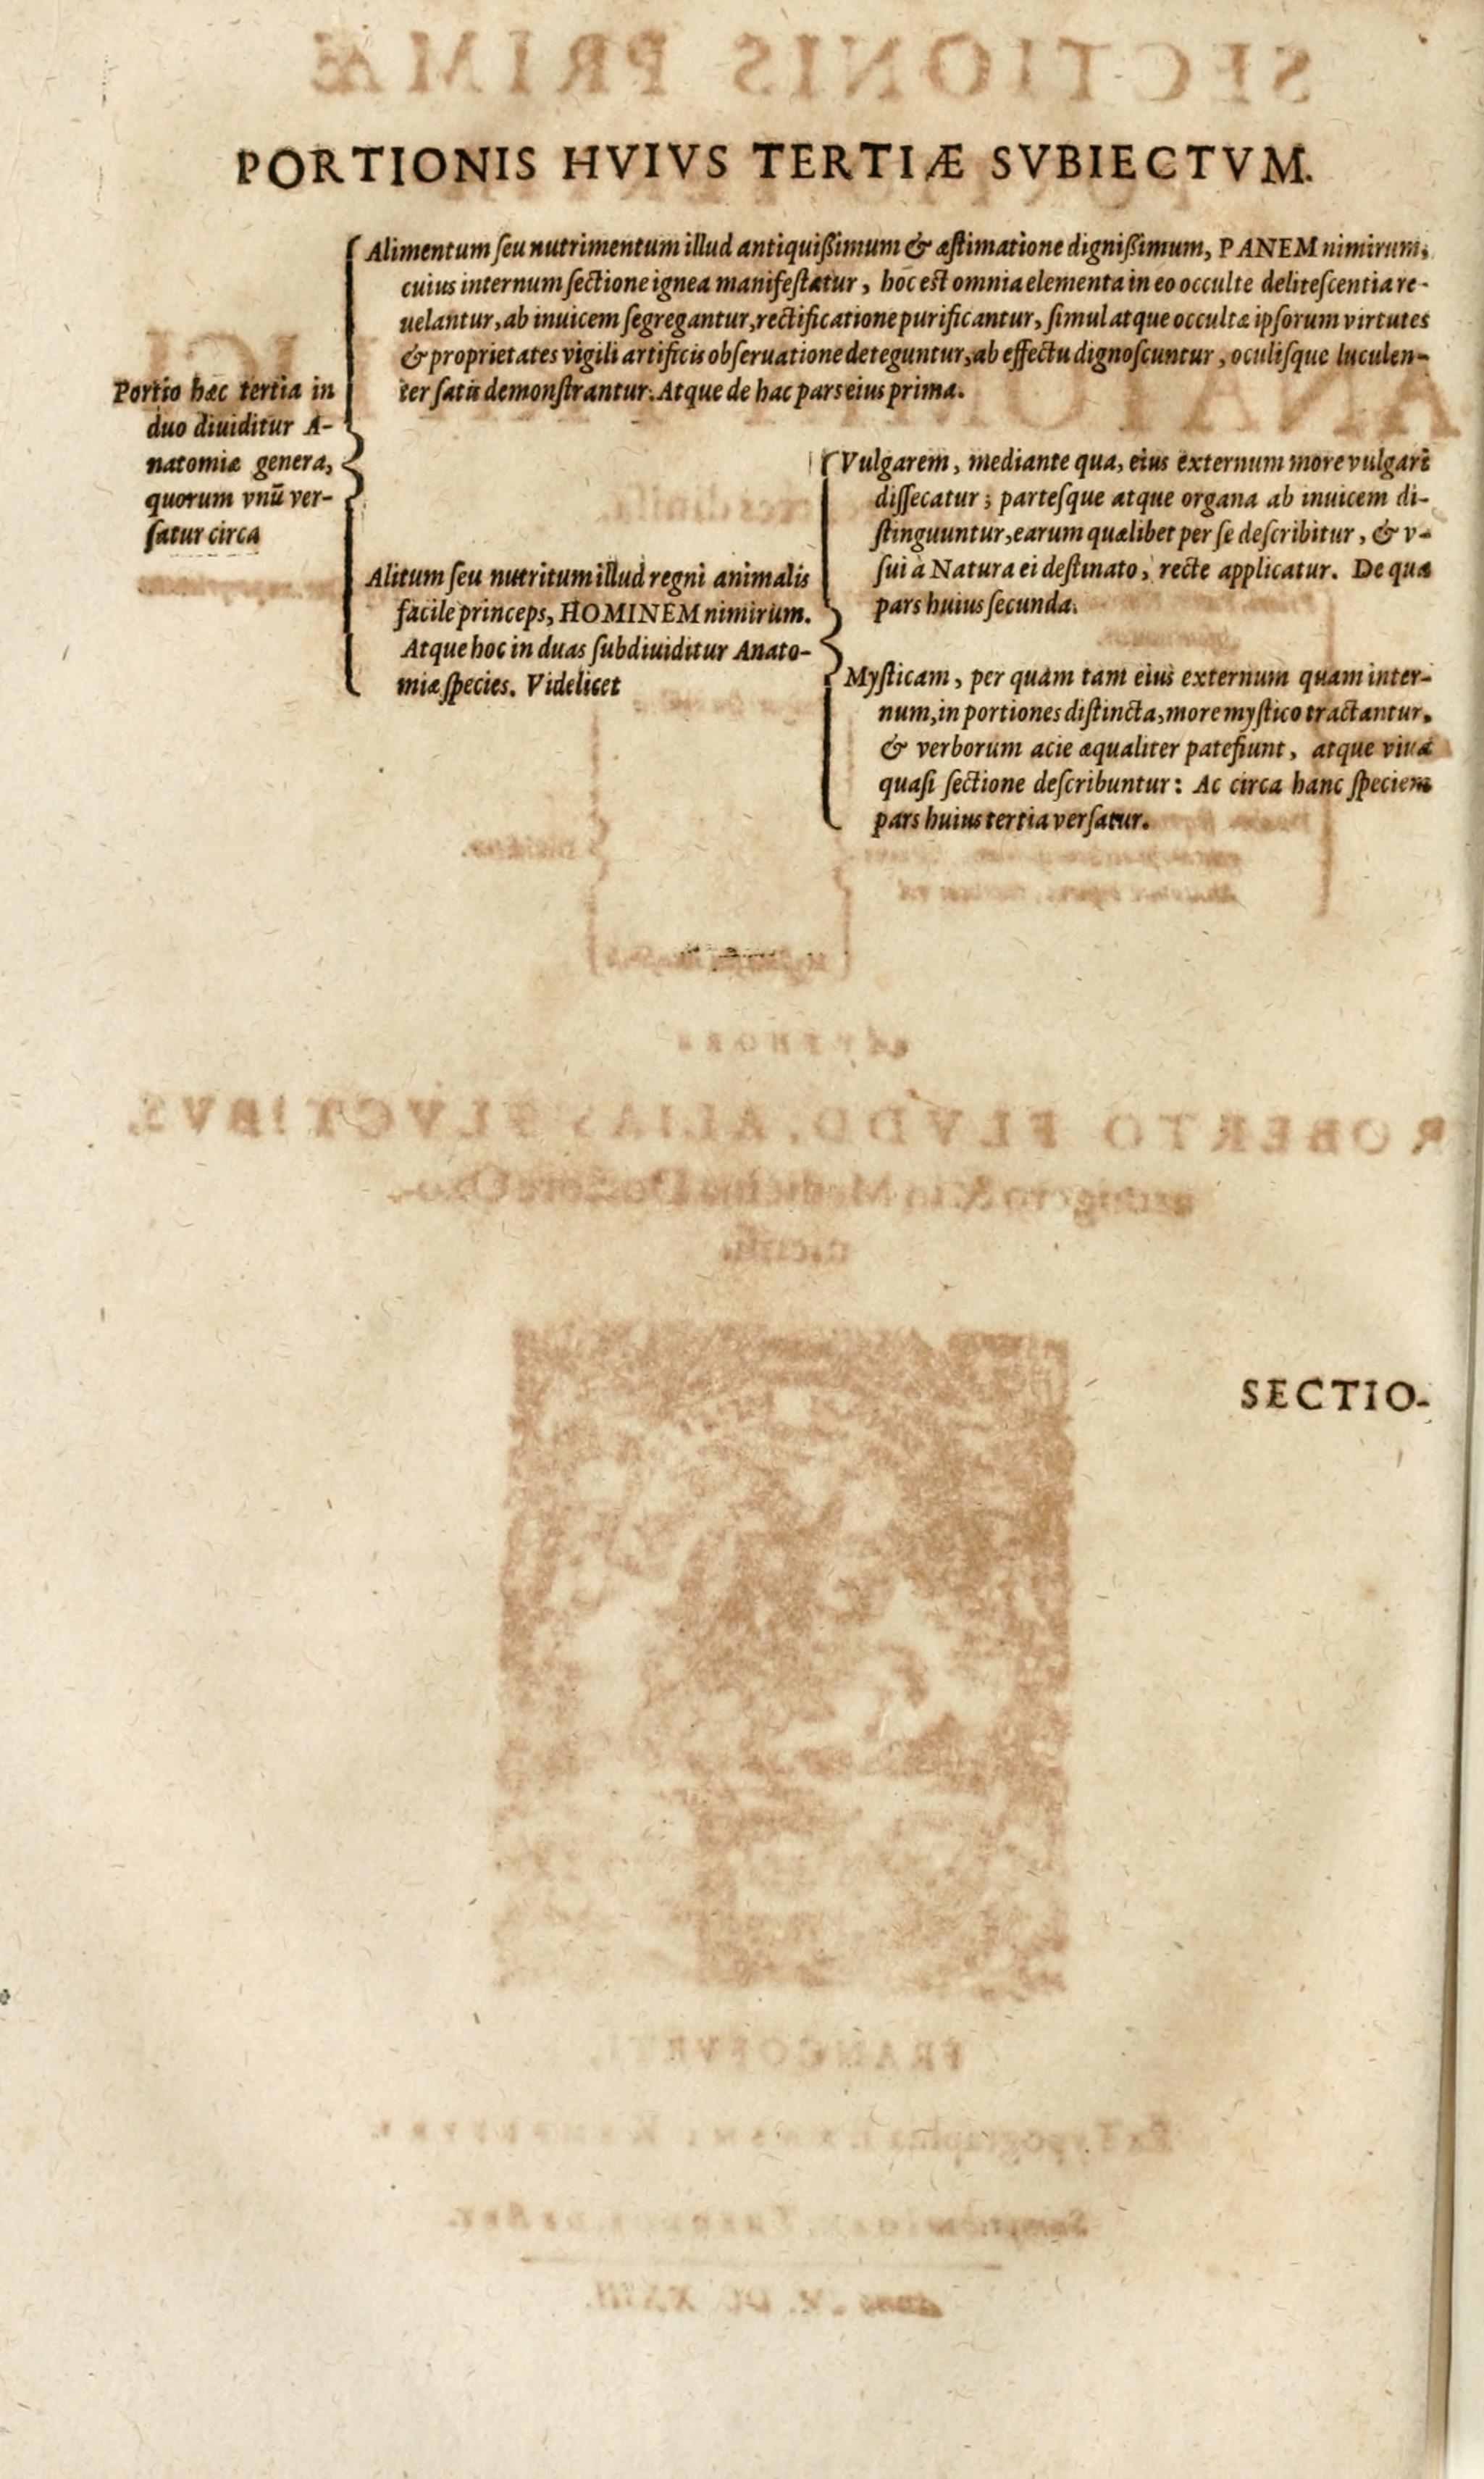 PORTIONIS HVIVS TERTIÆ SVBIECTVM.
Portio hæc tertia in
duo diuiditur A-
natomiæ genera,
quorum vnū ver-
ſatur circa
Alimentum ſeu nutrimentum illud antiquiſſimum & æſtimatione digniſſimum, PANEM nimirum,
cuius internum ſectione ignea manifeſtatur, hoc est omnia elementa in eo occulte deliteſcentia re-
uelantur, ab inuicem ſegregantur, rectificatione purificantur, ſimul atque occultæ ipſorum virtutes
& proprietates vigili artificis obſeruatione deteguntur, ab effectu dignoſcuntur, oculiſque luculen-
ter ſatis demonſtrantur: Atque de hac pars eius prima.
Alitum ſeu nutritum illud regni animalis
facile princeps, HOMINEM nimirum.
Atque hoc in duas ſubdiuiditur Anato-
miæ ſpecies. Videlicet
Vulgarem, mediante qua, eius externum more vulgari
diſſecatur; parteſque atque organa ab inuicem di-
ſtinguuntur, earum quælibet per ſe deſcribitur, & v-
ſui à Natura ei deſtinato, recte applicatur. De qua
pars huius ſecunda.
Myſticam, per quam tam eius externum quam inter-
num, in portiones diſtincta, more myſtico tractantur,
& verborum acie æqualiter patefiunt, atque viua
quaſi ſectione deſcribuntur: Ac circa hanc ſpeciem
pars huius tertia verſatur.
SECTIO-